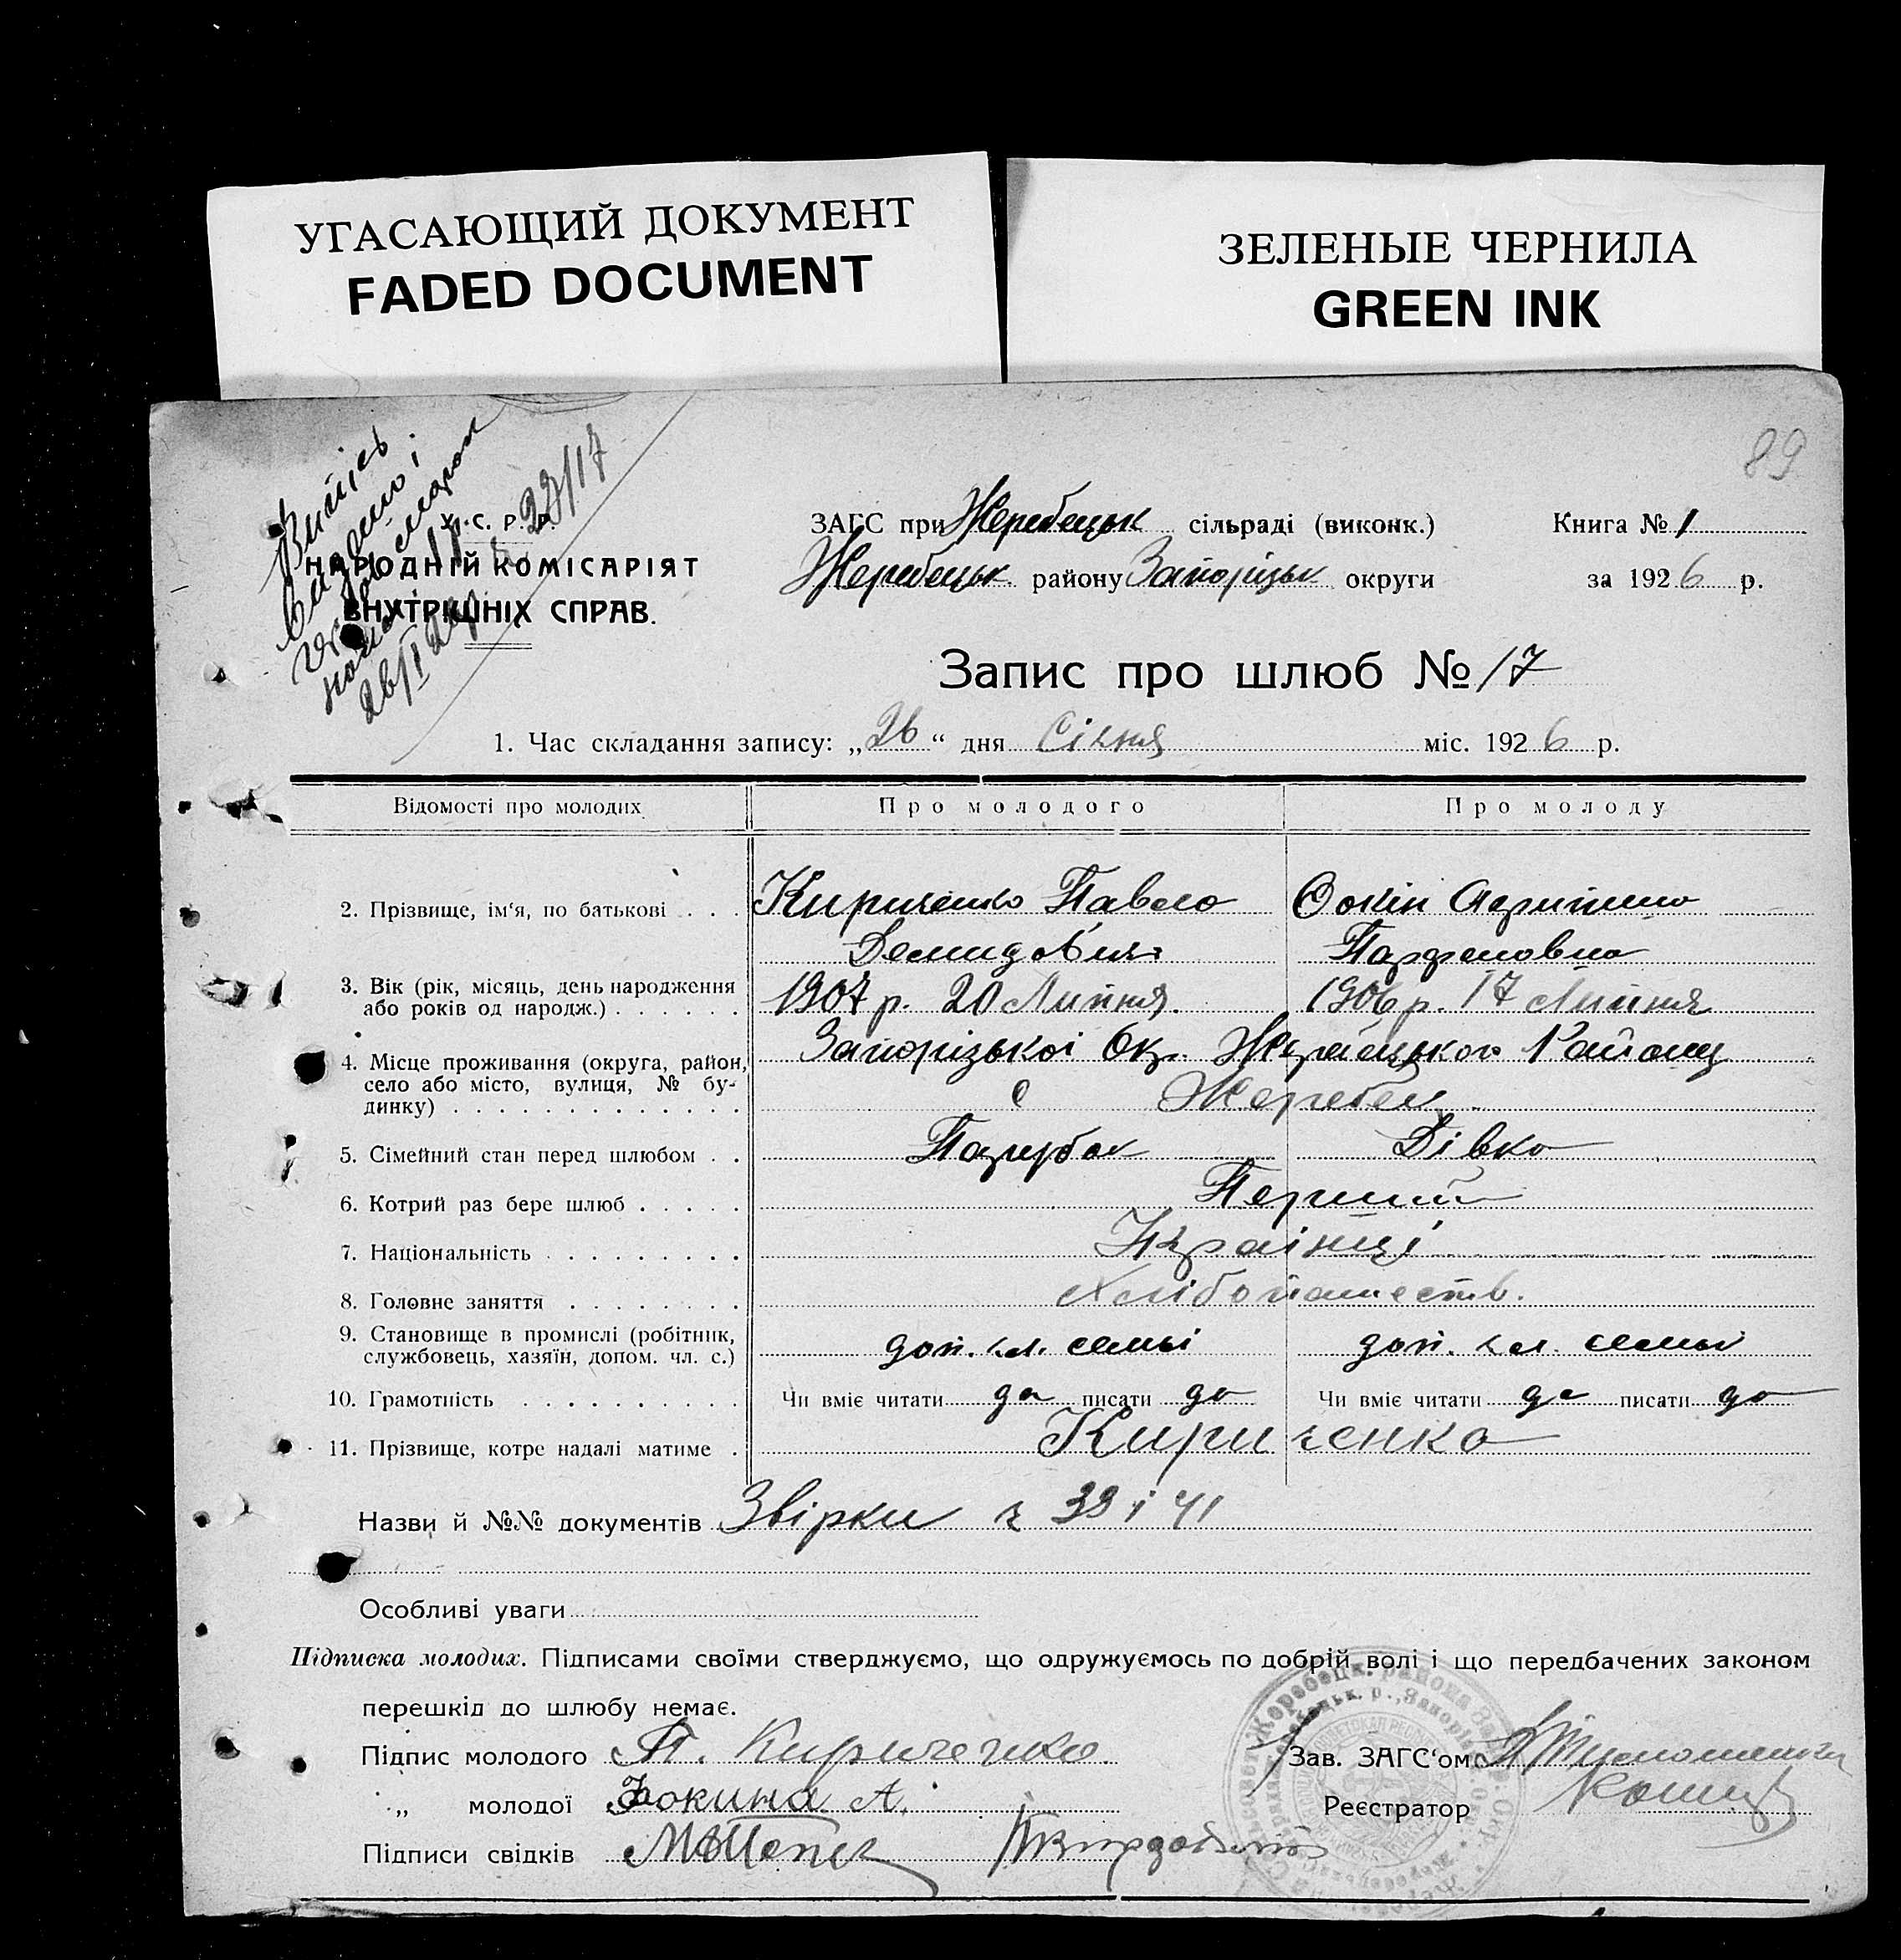 УГАСАЮЩИЙ ДОКУМЕНТ
FADED DOCUMENT
ЗЕЛЕНЫЕ ЧЕРНИЛА
GREEN INK
89
У. С. Р. Р.
НАРОДНІЙ КОМІСАРІЯТ
ВНУТРІШНІХ СПРАВ.
ЗАГС при Жеребецьк сільраді (виконк.) Книга № 1
Жеребецьк району Запоріцьк округи за 1926 р.
Запис про шлюб № 17
1. Час складання запису: „26“ дня Січня міс. 1926 р.
Відомості про молодих Про молодого Про молоду
2. Прізвище, ім‘я, по батькові Кириченко Павло Фокін Агрипина
Демидович Парфеновна
3. Вік (рік, місяць, день народження 1907 р. 20 Липня. 1906 р. 17 Липня
або років од народж.)
4. Місце проживання (округа, район, Запорізькоі Окр. Жеребецького Району
село або місто, вулиця, № бу-
динку) с Жеребец
5. Сімейний стан перед шлюбом Парубок Дівка
6. Котрий раз бере шлюб Перший
7. Національність Украінці
8. Головне заняття Хлібопашеств.
9. Становище в промислі (робітник, доп. чл. семьі доп. чл. семьі
службовець, хазяїн, допом. чл. с.)
10. Грамотність Чи вміє читати да писати да Чи вміє читати да писати да
11. Прізвище, котре надалі матиме Кириченко
Назви й №№ документів Звірки ч 39 і 41
Особливі уваги
Підписка молодих. Підписами своїми стверджуємо, що одружуємось по добрій волі і що передбачених законом
перешкід до шлюбу немає.
Підпис молодого П. Кириченко Зав. ЗАГС‘ом
„ молодої Фокина А. Реєстратор
Підписи свідків